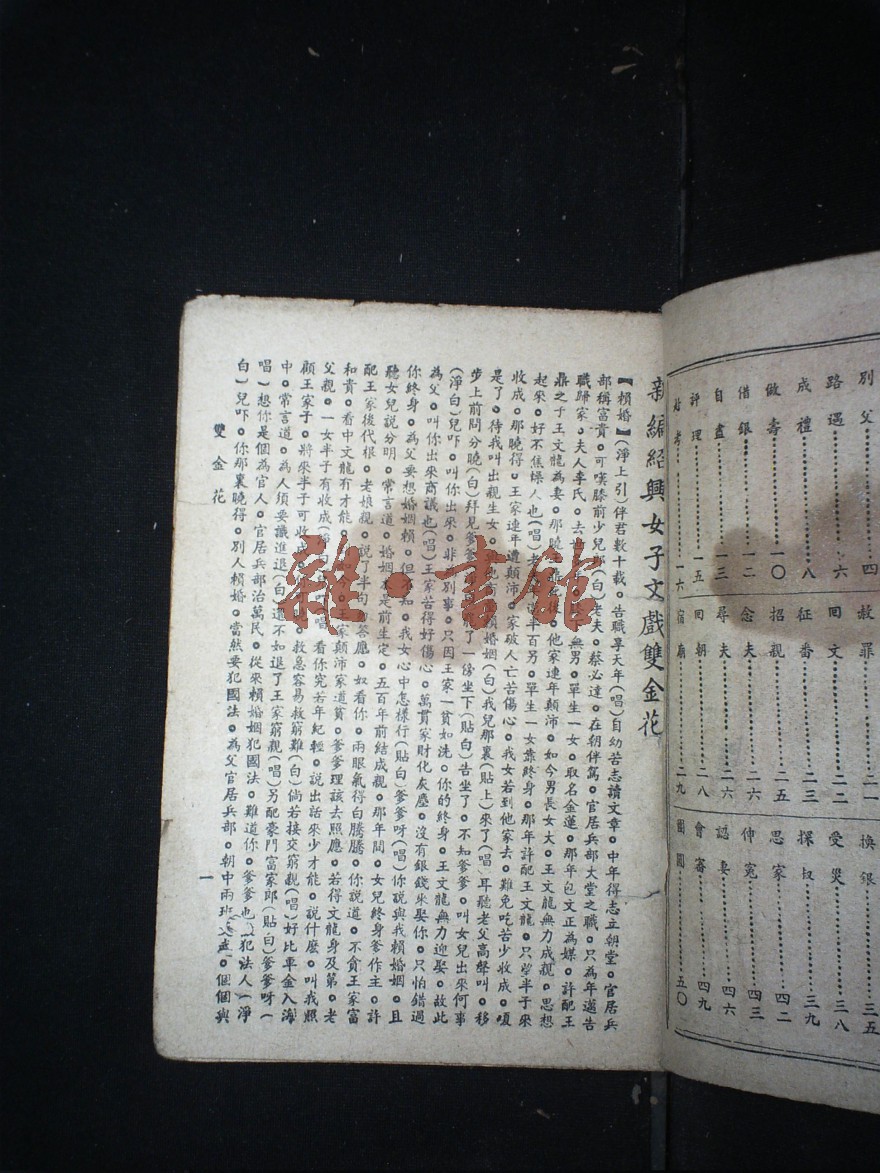 別父⋯⋯四
路遇⋯⋯六
成禮⋯⋯八
做壽⋯⋯一〇
借銀⋯⋯一二
自盡⋯⋯一三
評理⋯⋯一五
赴考⋯⋯一六
赦罪⋯⋯二一
回文⋯⋯二二
征番⋯⋯二三
招親⋯⋯二五
念夫⋯⋯二六
尋夫⋯⋯二六
回朝⋯⋯二八
宿廟⋯⋯二九
換銀⋯⋯三五
受災⋯⋯三八
探叔⋯⋯三九
思家⋯⋯四二
伸冤⋯⋯四三
認妻⋯⋯四六
會審⋯⋯四九
團圓⋯⋯五〇
新編紹興女子文戲雙金花
【賴婚】(淨上引)伴君數十載。告職享天年(唱)自幼苦志讀文章。中年得志立朝堂。官居兵
部稱富貴。可嘆膝前少兒郎(白)老夫。蔡必達。在朝伴駕。官居兵部大堂之職。只為年邁告
職歸家。夫人李氏。去世無男。單生一女。取名金蓮。那年包文正為媒。許配王
鼎之子王文龍為妻。那曉後。他家連年顛沛。如今男長女大。王文龍無力成親。思想
起來。好不焦燥人也(唱)老道半百男。單生一女靠終身。那年許配王文龍。只望半子來
收成。那曉得。王家連年遭顛沛。家破人亡苦傷心。我女若到他家去。難免吃苦少收成。嗄
是了。待我叫出親生女。賴婚姻(白)我兒那裏(貼上)來了(唱)耳聽老父高聲叫。移
步上前問分曉(白)拜見爹爹了一傍坐下(貼白)告坐了。不知爹爹。叫女兒出來何事
(淨白)兒吓。叫你出來。非別事。只因王家一貧如洗。你的終身。王文龍無力迎娶。故此
為父。叫你出來商議也(唱)王家苦得好傷心。萬貫家財化灰塵。沒有銀錢來娶你。只怕錯過
你終身。為父要想婚姻賴。但不知。我女心中怎樣行(貼白)爹爹呀(唱)你說與我賴婚姻。且
聽女兒說分明。常言道。婚姻本是前生定。五百年前結成親。那年間。女兒終身爹作主。許
配王家後代根。老娘親。說了半句答應。奴看你。兩眼氣得白騰騰。你說道。不貪王家富
和貴。看中文龍有才能。如今。王家顛沛家道貧。爹爹理該去照應。若得文龍身及第。老
父親。一女半子有收成(淨白)唱)看你究若年紀輕。說出話來少才能。說什麽。叫我照
顧王家子。將來半子可收成。救急容易救窮難(白)倘若接交窮親(唱)好比車金入海
中。常言道。為人須要識進退(白)還不如退了王家窮親(唱)另配豪門富家郎(貼白)爹爹呀(
唱)想你是個為官人。官居兵部治萬民。從來賴婚姻犯國法。難道你。爹爹也做犯法人(淨
白)兒吓。你那裏曉得。別人賴婚。當然要犯國法。為父官居兵部。朝中兩班。個個與
雙金花
一
雜·書館